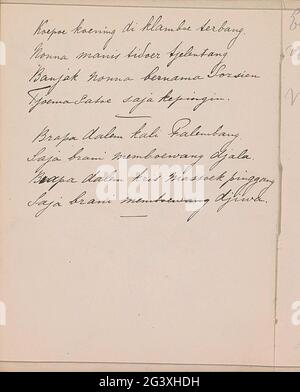 Koepoe koening di klamboe terbang.
Nonna manis tidoer tjelentang
Banjak nonna bernama Sorsien
Tjoema satoe saja kepingin.
Brapa dalem kali Palembang.
Saja brani memboewang djala.
Brapa dalem kris masoek pinggang
Saja brani memboewang djiwa.
alamy
2G3XHDH